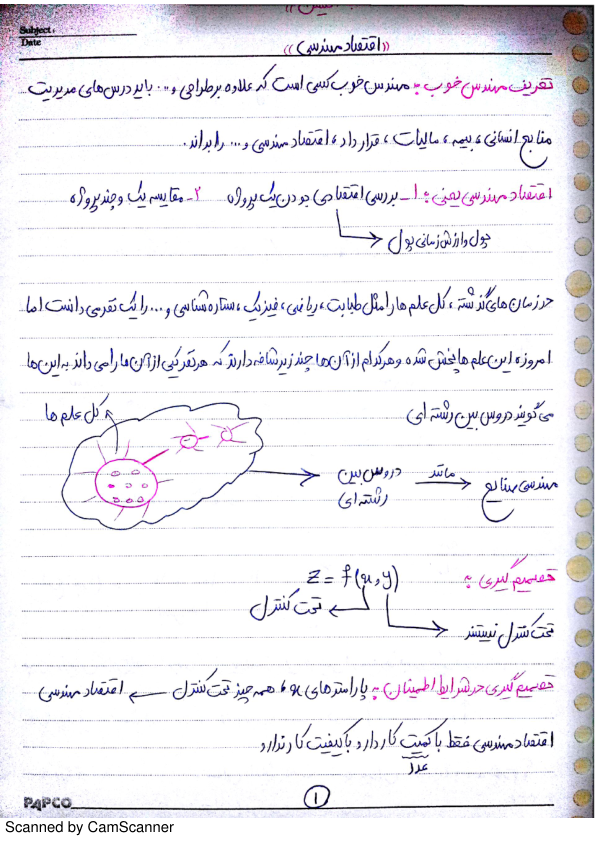 Subject:
Date
«اقتصاد مهندسی»
تعریف مهندس خوب: مهندس خوب کسی است که علاوه بر طراحی و... باید درس‌های مدیریت
منابع انسانی، بیمه، مالیات، قرارداد، اقتصاد مهندسی و... را بداند.
اقتصاد مهندسی یعنی: ۱- بررسی اقتصادی بودن یک پروژه ۲- مقایسه یک و چند پروژه
پول و ارزش زمانی پول
در زمان های گذشته، کل علم ها را مثل طبابت، ریاضی، فیزیک، ستاره شناسی و... را یک نفر می دانست اما
امروزه، این علم ها پخش شده و هر کدام از آن ها چند زیر شاخه دارند که هر نفر یکی از آن ها را می داند به این ها
می گویند دروس بین رشته ای
کل علم ها
دروس بین رشته ای
مانند
مهندسی صنایع
تصمیم گیری:
z = f(x,y)
تحت کنترل
تحت کنترل نیستند
تصمیم گیری در شرایط اطمینان: پارامترهای x، همه چیز تحت کنترل ← اقتصاد مهندسی
اقتصاد مهندسی فقط با کمیت کار دارد و با کیفیت کار ندارد
عدد
PAPCO
۱
Scanned by CamScanner